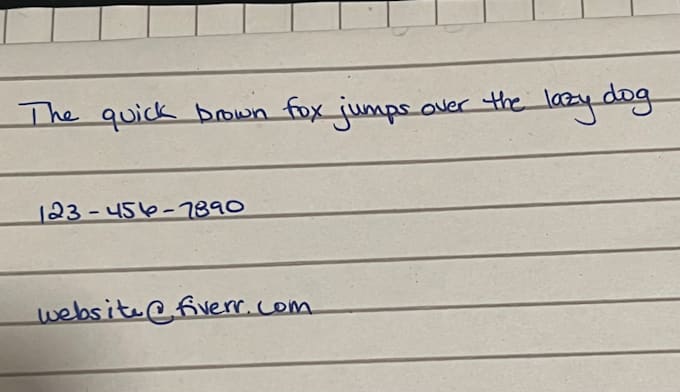 The quick brown fox jumps over the lazy dog
123-456-7890
website@fiverr.com